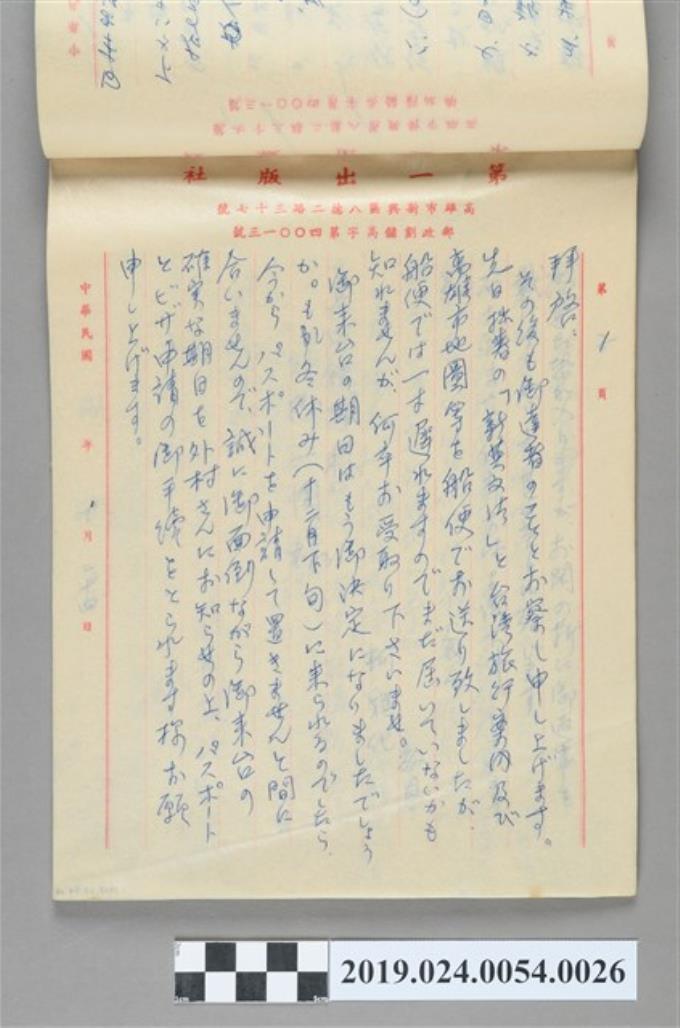 第一出版社
高雄市新興區八德二路三十七號
郵政劃儲高字第四〇〇一三號
第 1 頁
拝啓、
その後も御達者のことお察し申し上げます。
先日拙者の「新英文法」と台湾旅行案内及び
高雄市地圖等を船便でお送り致しましたが、
船便では一寸遅れますのでまだ届いていないかも
知れませんが、何卒お受取り下さいませ。
御来台の期日はもう御決定になりましたでしょう
か。もし冬休み(十二月下旬)に来られるのでしたら、
今からパスポートを申請して置きませんと間に
合いませんので、誠に御面倒ながら御来台の
確実な期日を外村さんにお知らせの上、パスポート
とビザ申請の御手続をとられます様お願
申し上げます。
中華民國 年 月 日
2019.024.0054.0026